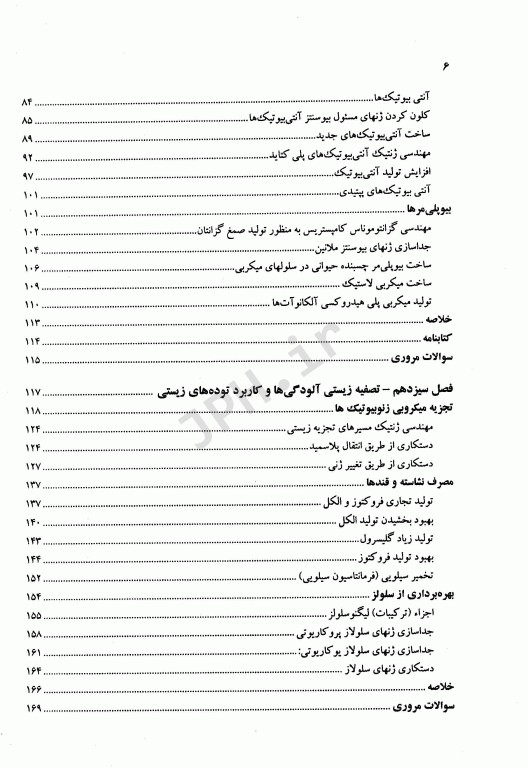 ۶
آنتی بیوتیک‌ها ۸۴
کلون کردن ژنهای مسئول بیوسنتز آنتی‌بیوتیک‌ها ۸۵
ساخت آنتی‌بیوتیک‌های جدید ۸۹
مهندسی ژنتیک آنتی‌بیوتیک‌های پلی کتاید ۹۲
افزایش تولید آنتی‌بیوتیک ۹۷
آنتی بیوتیک‌های پپتیدی ۱۰۱
بیوپلی‌مرها ۱۰۱
مهندسی گزانتوموناس کامپستریس به منظور تولید صمغ گزانتان ۱۰۲
جداسازی ژنهای بیوسنتز ملانین ۱۰۴
ساخت بیوپلی‌مر چسبنده حیوانی در سلولهای میکربی ۱۰۶
ساخت میکربی لاستیک ۱۰۹
تولید میکربی پلی هیدروکسی آلکانوآت‌ها ۱۱۰
خلاصه ۱۱۳
کتابنامه ۱۱۴
سوالات مروری ۱۱۵
فصل سیزدهم – تصفیه زیستی آلودگی‌ها و کاربرد توده‌های زیستی ۱۱۷
تجزیه میکروبی زنوبیوتیک ها ۱۱۸
مهندسی ژنتیک مسیرهای تجزیه زیستی ۱۲۴
دستکاری از طریق انتقال پلاسمید ۱۲۴
دستکاری از طریق تغییر ژنی ۱۲۷
مصرف نشاسته و قندها ۱۳۷
تولید تجاری فروکتوز و الکل ۱۳۷
بهبود بخشیدن تولید الکل ۱۴۰
تولید زیاد گلیسرول ۱۴۳
بهبود تولید فروکتوز ۱۴۴
تخمیر سیلویی (فرمانتاسیون سیلویی) ۱۵۲
بهره‌برداری از سلولز ۱۵۴
اجزاء (ترکیبات) لیگنوسلولز ۱۵۵
جداسازی ژنهای سلولاز پروکاریوتی ۱۵۸
جداسازی ژنهای سلولاز یوکاریوتی: ۱۶۱
دستکاری ژنهای سلولاز ۱۶۴
خلاصه ۱۶۶
سوالات مروری ۱۶۹
JPH.ir